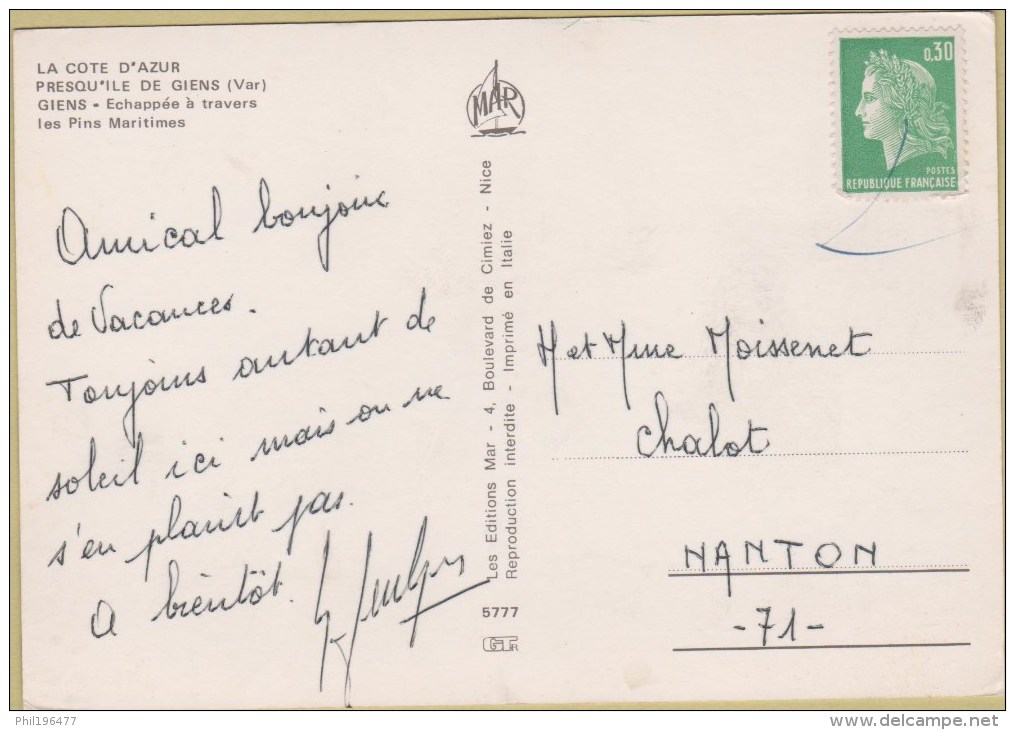 LA COTE D'AZUR
PRESQU'ILE DE GIENS (Var)
GIENS - Echappée à travers
les Pins Maritimes
Amical bonjour
de Vacances.
Toujours autant de
soleil ici mais on ne
s'en plaint pas.
A bientôt.
MAR
Les Editions Mar - 4, Boulevard de Cimiez - Nice
Reproduction interdite - Imprimé en Italie
5777
0,30
POSTES
REPUBLIQUE FRANÇAISE
M et Mme Moissenet
Chalot
NANTON
-71-
Phil196477
delcampe.net